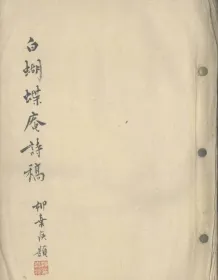 白蝴蝶庵詩稿
柳亦庚題